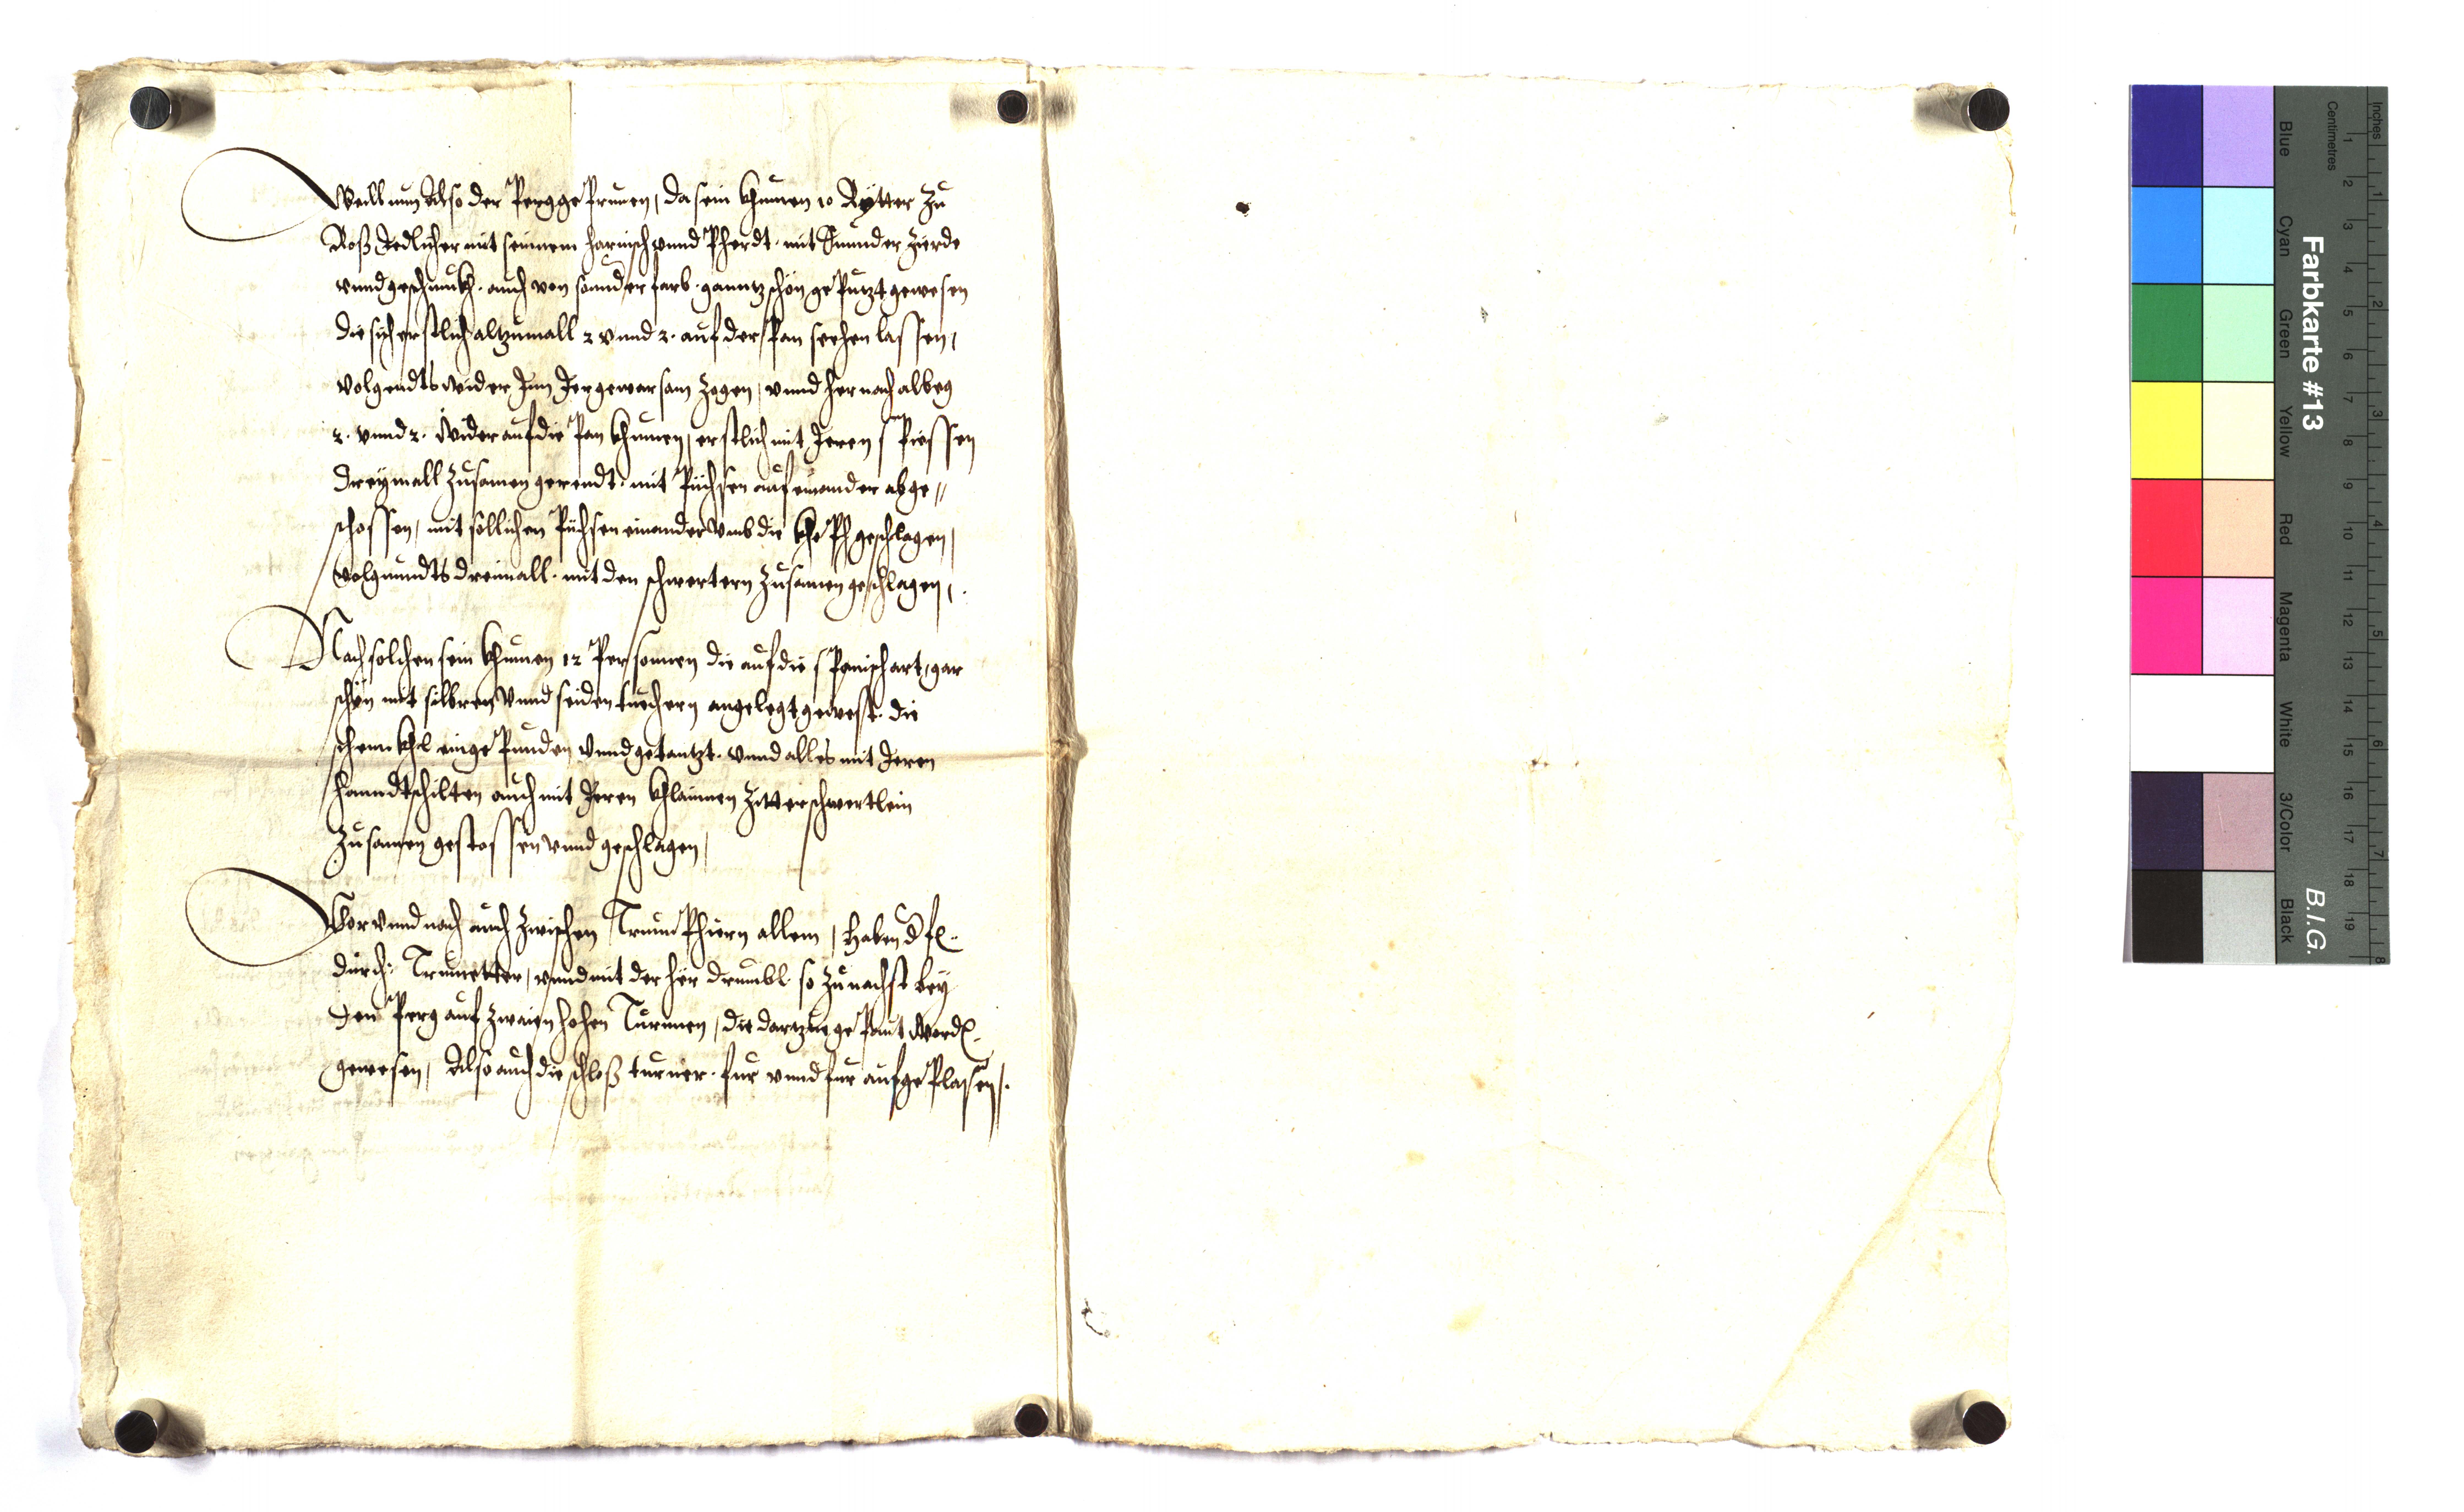 Weill nun Also der Pergge Prunen, da sein khumen 10 Rÿtter zu
Roß Iedlicher mit seinnem harnisch vnnd Pherdt. mit Sunnder Zierde
vnnd geschmukh. auch von sonnder farb. ganntz schön gePutzt gewesen
die sich erstlich altzumall 2 vnnd 2. auf der Pan seehen lassen,
volgendts wider Inn Ier gewarsam zogen, vnnd hernach albeg
2. vnnd 2. Wider auf die Pan khumen, erstlich mit Ieren sPiessen
dreÿmall zusamen gerendt. mit Püchsen auf einander abge//
schossen, mit söllichen Püchsen einander vmb die khePf geschlagen,
volgenndts dreimall. mit den schwertern zusamen geschlagen,.
Nach solchen sein khumen 12 Personnen die auf die sPanisch art, gar
schön mit silbren vnnd seiden tüechern angelegt gewest. die
schennkhl eingePunden vnnd getantzt. vnnd alles mit Ieren
hanndtschilten auch mit Ieren khlainnen Zitterschwertlein
zusamen gestossen vnnd geschlagen,
Vor vnnd nach auch zwischen TriumPhiern allem, Haben d fr.
durch: Trumetter, vnnd mit der hör drumbl so zunachst beÿ
den Perg auf zwaien hohen Turnnen, die dartzue gePaut Word.
gewesen, Also auch die schloß turner. fur vnnd fur aufgePlasen,.
Farbkarte #13
B.I.G.
Inches
Centimetres
Blue
Cyan
Green
Yellow
Red
Magenta
White
3/Color
Black
1 2 3 4 5 6 7 8 9 10 11 12 13 14 15 16 17 18 19
1 2 3 4 5 6 7 8